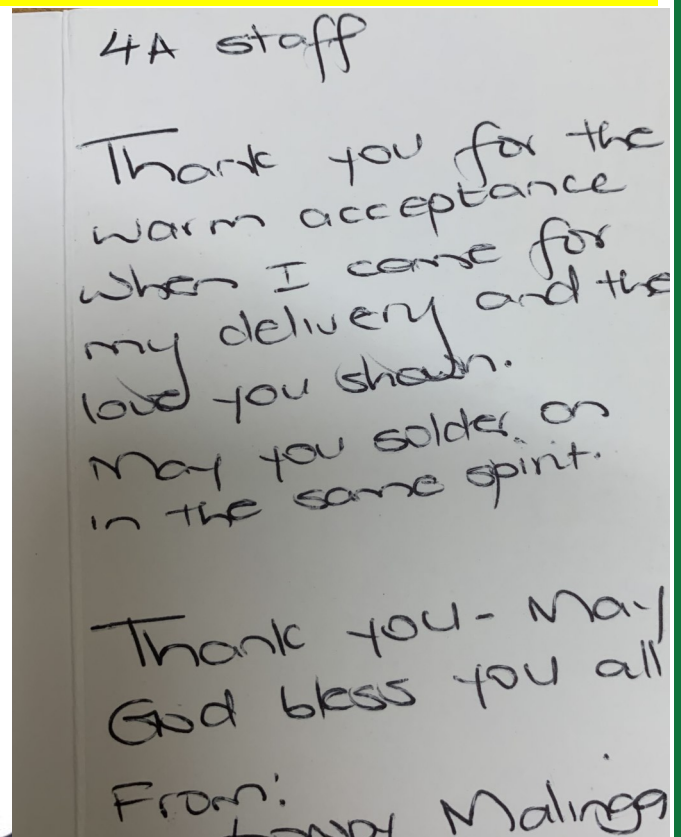 4A staff
Thank you for the
warm acceptance
when I came for
my delivery and the
love you shown.
May you solder on
in the same spirit.
Thank you - May
God bless you all
From:
Malinga